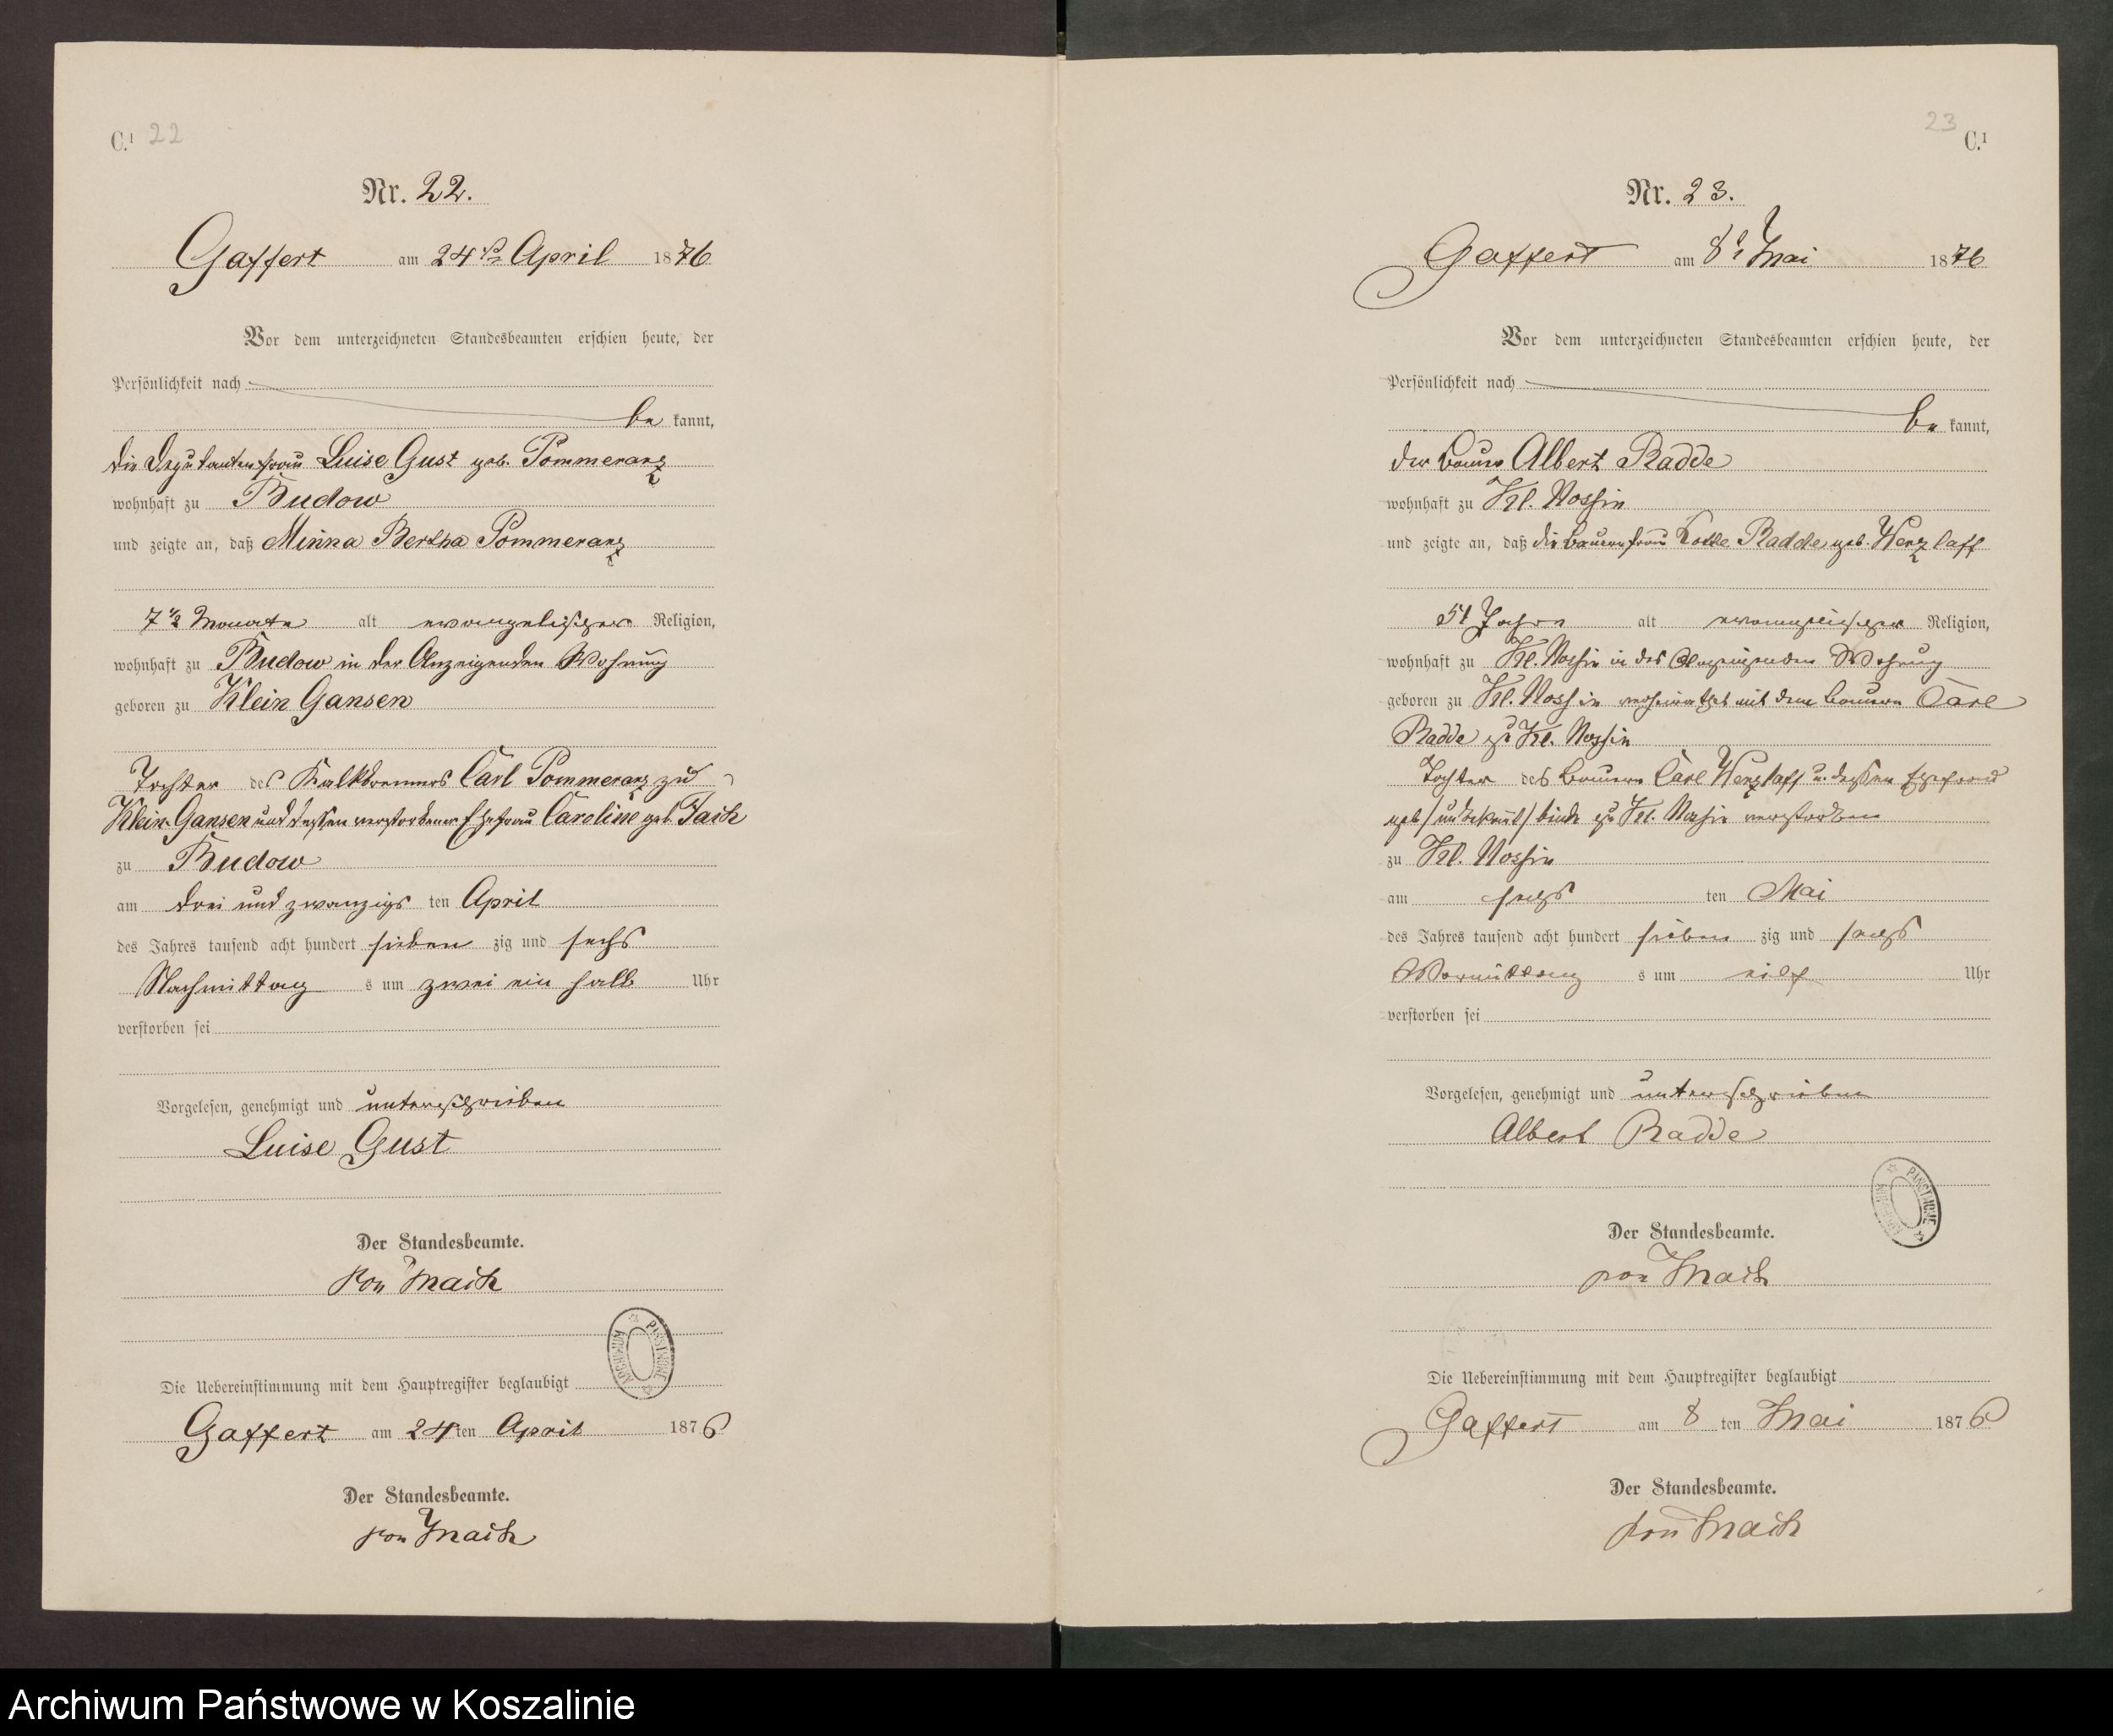 C.¹ 22
Nr. 22.
Gaffert am 24ten April 1876
Vor dem unterzeichneten Standesbeamten erschien heute, der
Persönlichkeit nach
be kannt,
die Deputantenfrau Luise Gust geb. Pommeranz
wohnhaft zu Budow
und zeigte an, daß Minna Bertha Pommeranz
7 1/2 Monate alt evangelischer Religion,
wohnhaft zu Budow in der Anzeigenden Wohnung
geboren zu Klein Gansen
Tochter des Kalkbrenners Carl Pommeranz zu
Klein-Gansen und dessen verstorbener Ehefrau Caroline geb.
zu Budow
am drei und zwanzigs ten April
des Jahres tausend acht hundert sieben zig und sechs
Nachmittag s um zwei ein halb Uhr
verstorben sei
Vorgelesen, genehmigt und unterschrieben
Luise Gust
Der Standesbeamte.
von Mach
ARCHIWUM PAŃSTWOWE
Die Uebereinstimmung mit dem Hauptregister beglaubigt
Gaffert am 24 ten April 1876
Der Standesbeamte.
von Mach
23 C.¹
Nr. 23.
Gaffert am 8t Mai 1876
Vor dem unterzeichneten Standesbeamten erschien heute, der
Persönlichkeit nach
be kannt,
der Bauer Albert Radde
wohnhaft zu Kl. Nossin
und zeigte an, daß die Bauernfrau Radde geb. Wenzlaff
51 Jahre alt evangelischer Religion,
wohnhaft zu Kl. Nossin in des Anzeigenden Wohnung
geboren zu Kl. Nossin verheirathet mit dem Bauern Carl
Radde zu Kl. Nossin
Tochter des Bauern Carl Wenzlaff u. dessen Ehefrau
geb / unbekannt / beide zu Kl. Nossin verstorben
zu Kl. Nossin
am sechs ten Mai
des Jahres tausend acht hundert sieben zig und sechs
Vormittag s um eilf Uhr
verstorben sei
Vorgelesen, genehmigt und unterschrieben
Albert Radde
ARCHIWUM PAŃSTWOWE
Der Standesbeamte.
von Mach
Die Uebereinstimmung mit dem Hauptregister beglaubigt
Gaffert am 8 ten Mai 1876
Der Standesbeamte.
von Mach
Archiwum Państwowe w Koszalinie